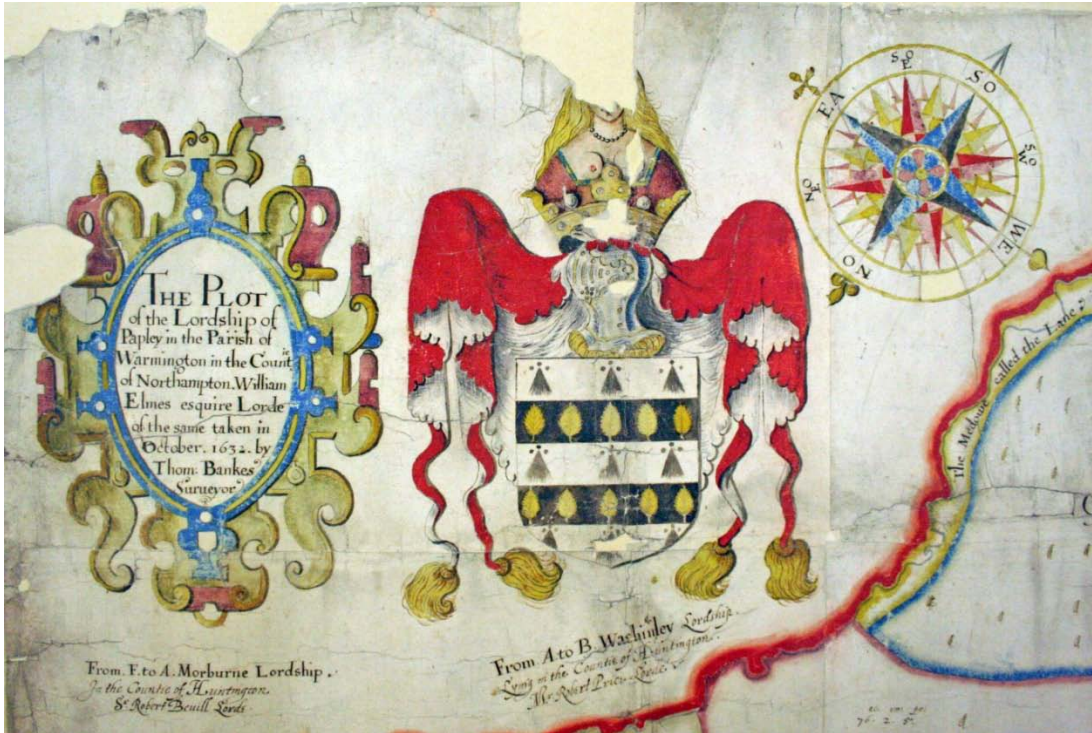 THE PLOT
of the Lordship of
Papley in the Parish of
Warmington in the Countie
of Northampton. William
Elmes esquire Lorde
of the same taken in
October. 1632. by
Thom: Bankes
Surveyor
SO
E
SO
SO
W
WE
NO
NO
E
EA
The Medowe called the Lane
From F. to A. Morburne Lordship.
In the Countie of Huntington
Sr. Robert Bevill Lorde.
From A to B Washinley Lordship.
Lying in the Countie of Huntington.
Mr Robert Price Lorde.
76. 2. 5.